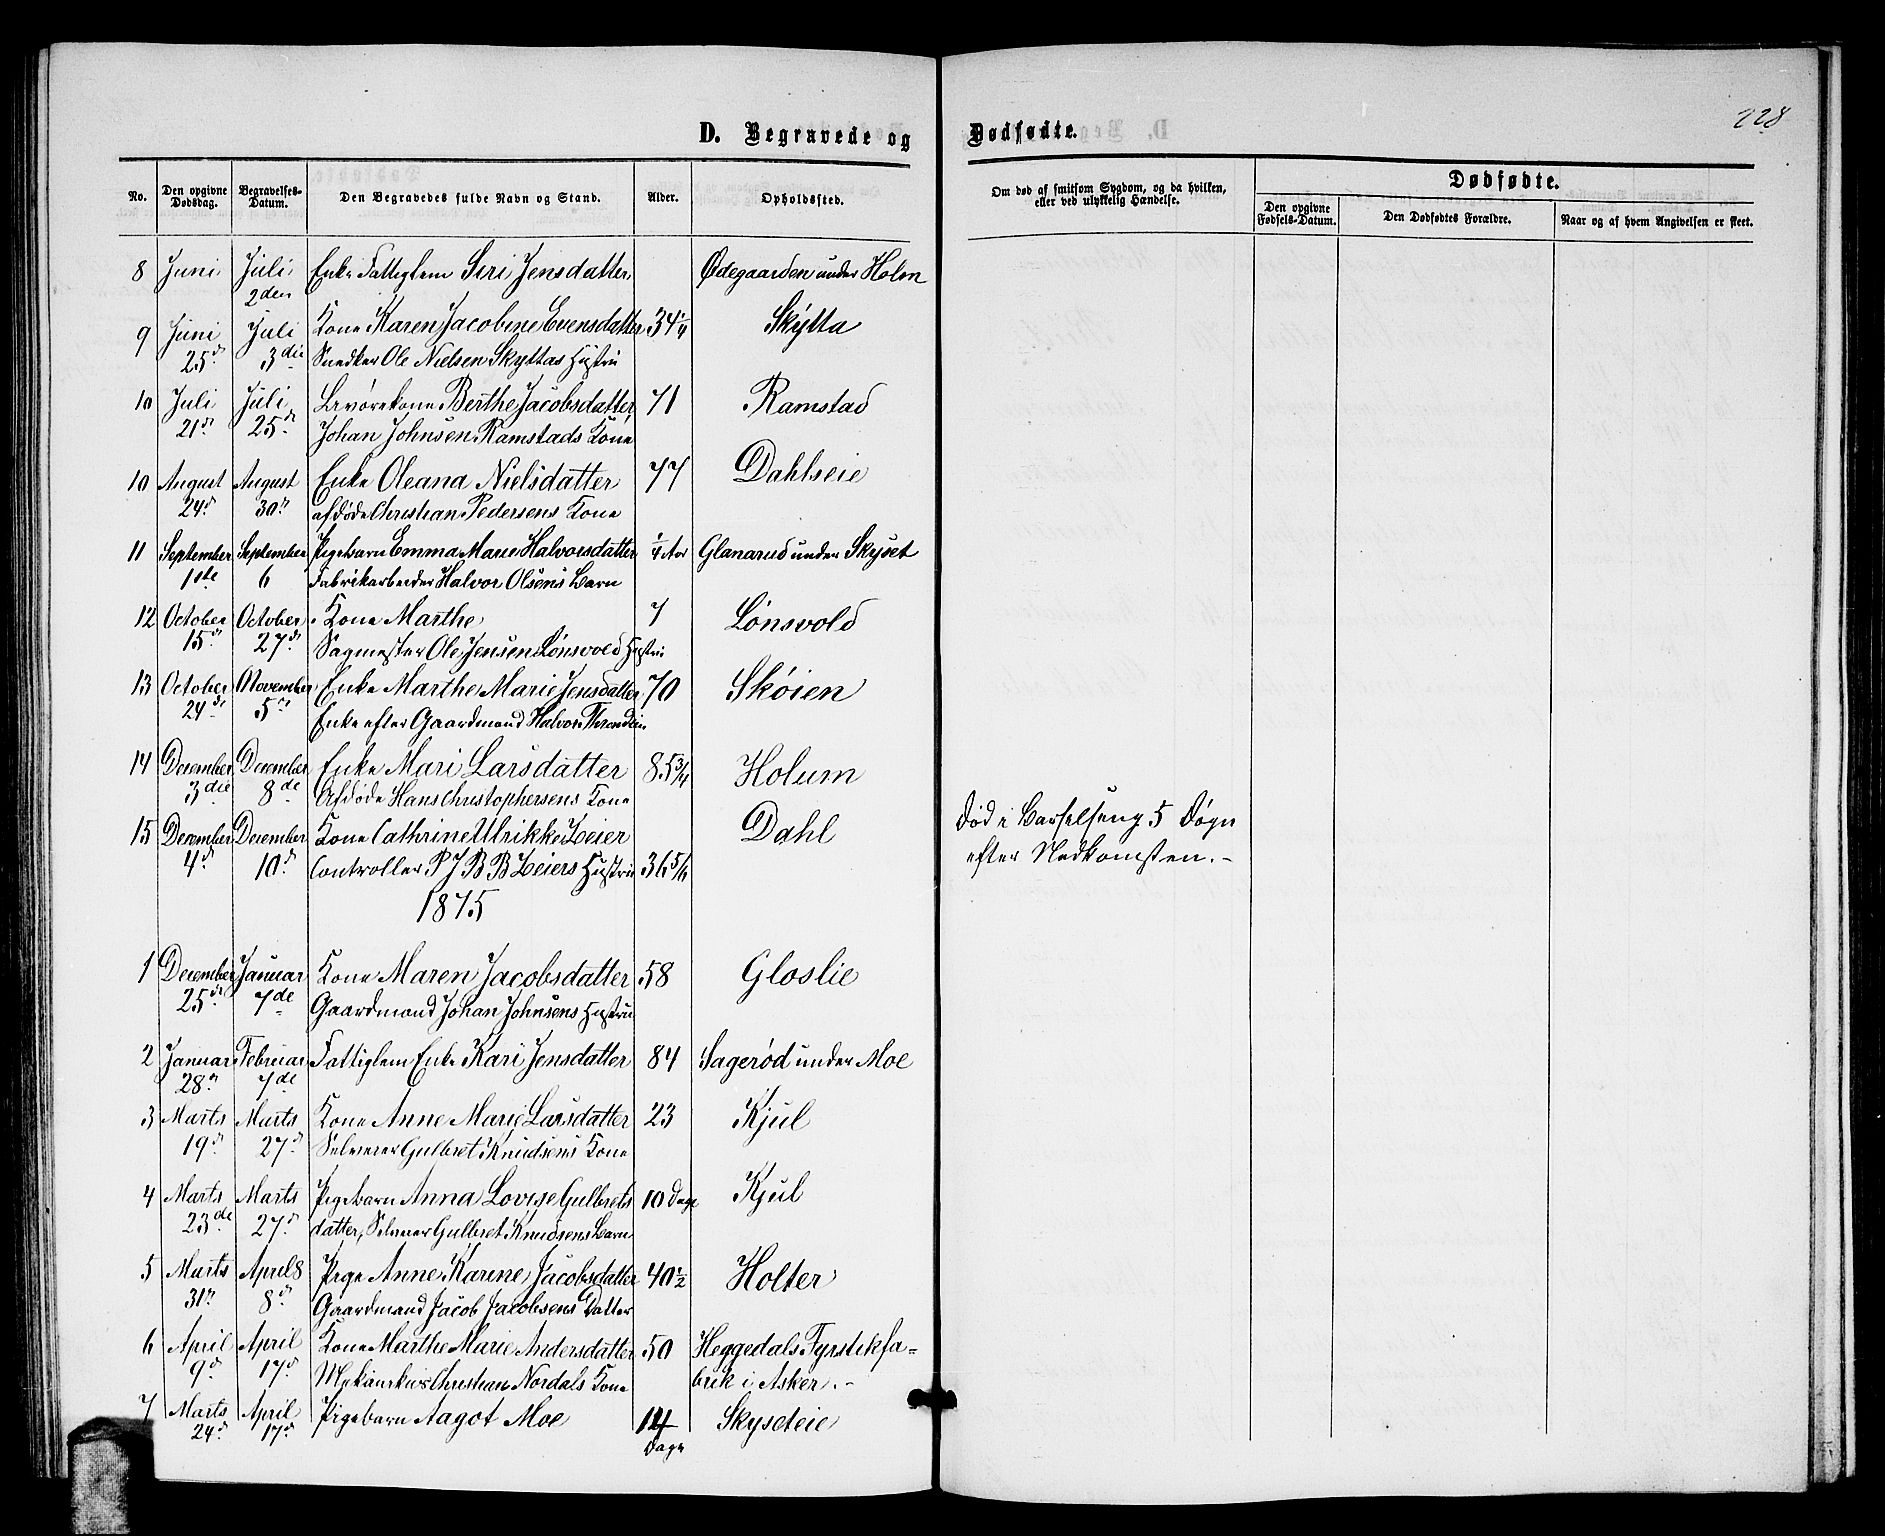 228
D. Begravede og Dødfødte.
No. Den opgivne Dødsdag. Begravelses-Datum. Den Begravedes fulde Navn og Stand. Alder. Opholdssted. Om død af smitsom Sygdom, og da hvilken, eller ved ulykkelig Hændelse. Dødfødte.
Den opgivne Fødsels-Datum. Den Dødfødtes Forældre. Naar og af hvem Angivelsen er skeet.
8 Juni Juli Enke Fattiglem Siri Jensdatter Ødegaarden under Holm
2den
9 Juni Juli Kone Karen Jacobine Evensdatter 34¼ Skytta
25d 3die Snedker Ole Nielsen Skyttas Hustru
10 Juli Juli Berthe Jacobsdatter 71 Ramstad
21d 25d Johan Johnsen Ramstads Kone
10 August August Enke Oleana Nielsdatter 77 Dahlseie
24d 30n afdøde Christian Pedersens Kone
11 September September Pigebarn Emma Marie Halvorsdatter ¼ Aar Glanarud under Skyset
1ste 6 Fabrikarbeider Halvor Olsens Barn
12 October October Kone Marthe 7 Lønsvold
15d 27d Sagmester Ole Jensen Lønsvold Hustru
13 October November Enke Marthe Marie Jensdatter 70 Skøien
24d 5n Enke efter Gaardmand Halvor
14 December December Enke Mari Larsdatter 85¾ Holum
3die 8de Afdøde Hans Christophersens Kone
15 December December Kone Cathrine Ulrikke Leier Dahl Død i Barselseng 5 Døgn
4d 10d Controller P J B B Leiers Hustru 36 5/6 efter Nedkomsten.-
1875
1 December Januar Kone Maren Jacobsdatter 58 Gloslie
25d 7de Gaardmand Johan Johnsens Hustru
2 Januar Februar Fattiglem Enke Kari Jensdatter 84 Sagerød under Moe
28n 7de
3 Marts Marts Kone Anne Marie Larsdatter 23 Kjul
19d 27d Selveier Gulbret Knudsens Kone
4 Marts Marts Pigebarn Anna Lovise Gulbrets 10 Dage Kjul
23de 27d datter, Selveier Gulbret Knudsens Barn
5 Marts April 8 Pige Anne Karine Jacobsdatter 40½ Holter
31n 8d Gaardmand Jacob Jacobsens Datter
6 April April Kone Marthe Marie Andersdatter 50 Heggedals Fyrstikfa=
9d 17d Christian Nordals Kone brik i Asker.-
7 Marts April Pigebarn Aagot Moe 14 Skyseteie
24d 17d Dage